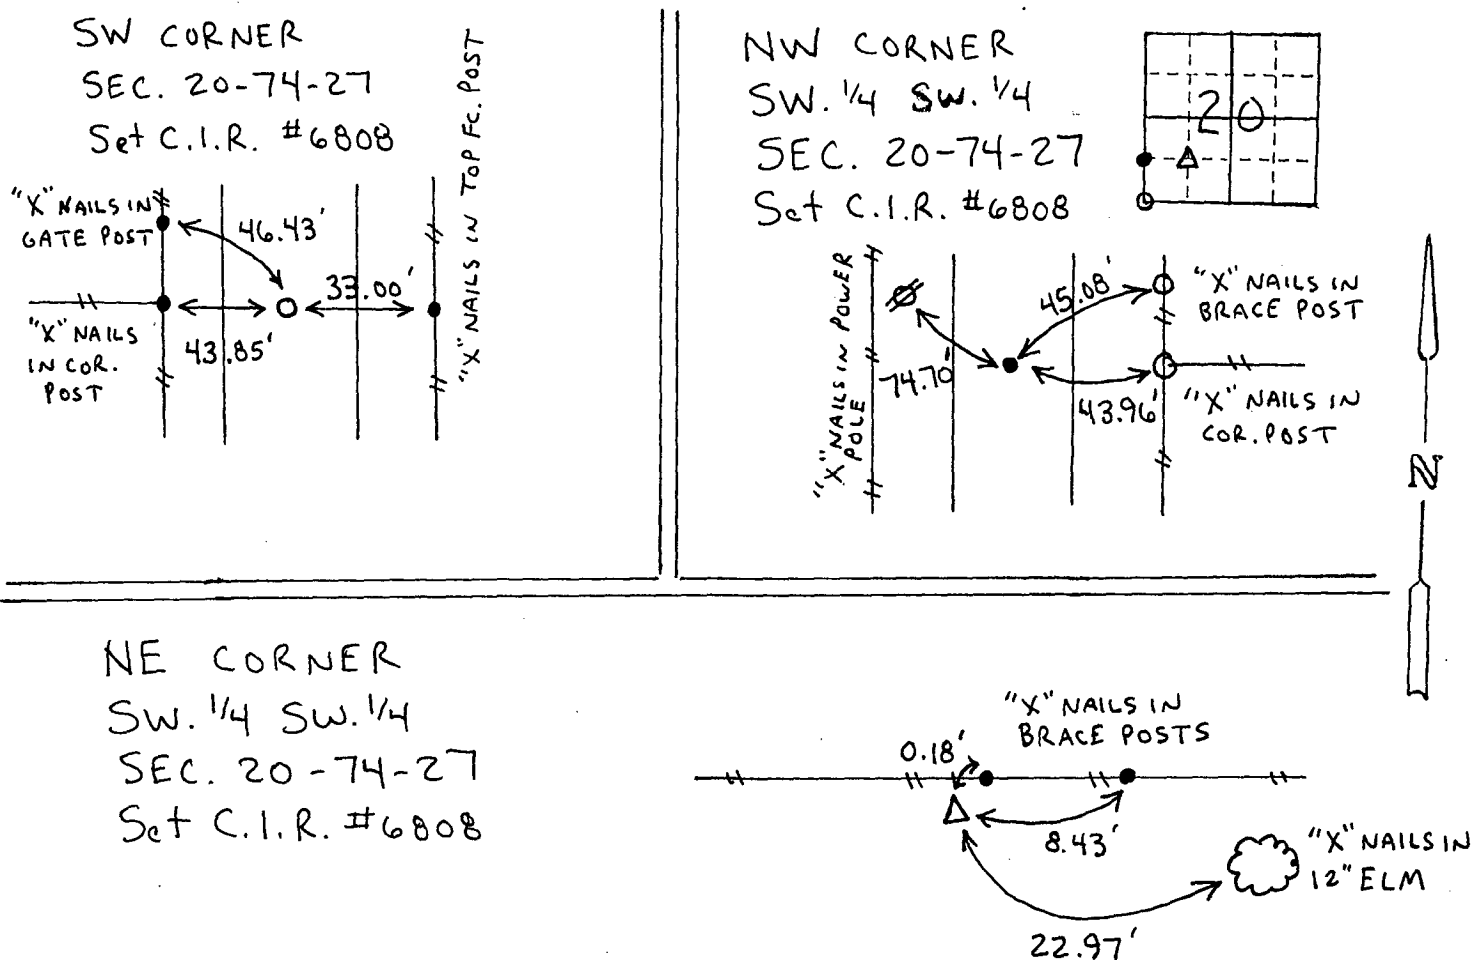 SW CORNER
SEC. 20-74-27
Set C.I.R. #6808
"X" NAILS IN
GATE POST
46.43'
33.00'
43.85'
"X" NAILS
IN COR.
POST
"X" NAILS IN TOP FC. POST
NW CORNER
SW. 1/4 SW. 1/4
SEC. 20-74-27
Set C.I.R. #6808
20
"X" NAILS IN POWER
POLE
74.70'
45.08'
43.96'
"X" NAILS IN
BRACE POST
"X" NAILS IN
COR. POST
N
NE CORNER
SW. 1/4 SW. 1/4
SEC. 20-74-27
Set C.I.R. #6808
"X" NAILS IN
BRACE POSTS
0.18'
8.43'
"X" NAILS IN
12" ELM
22.97'